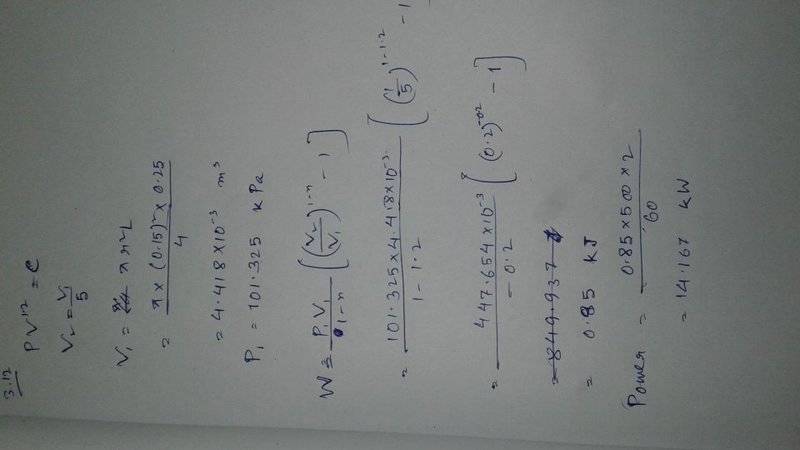 3.12
PV^1.2 = C
V₂ = V₁/5
V₁ = π r² L
= π × (0.15)² × 0.25 / 4
= 4.418 × 10⁻³ m³
P₁ = 101.325 kPa
W = P₁V₁/(1-n) [(V₂/V₁)^(1-n) - 1]
= 101.325 × 4.418 × 10⁻³ / (1-1.2) [(1/5)^(1-1.2) - 1
= 447.654 × 10⁻³ / -0.2 [(0.2)^-0.2 - 1]
= 849.937 J
= 0.85 kJ
Power = 0.85 × 500 × 2 / 60
= 14.167 kW